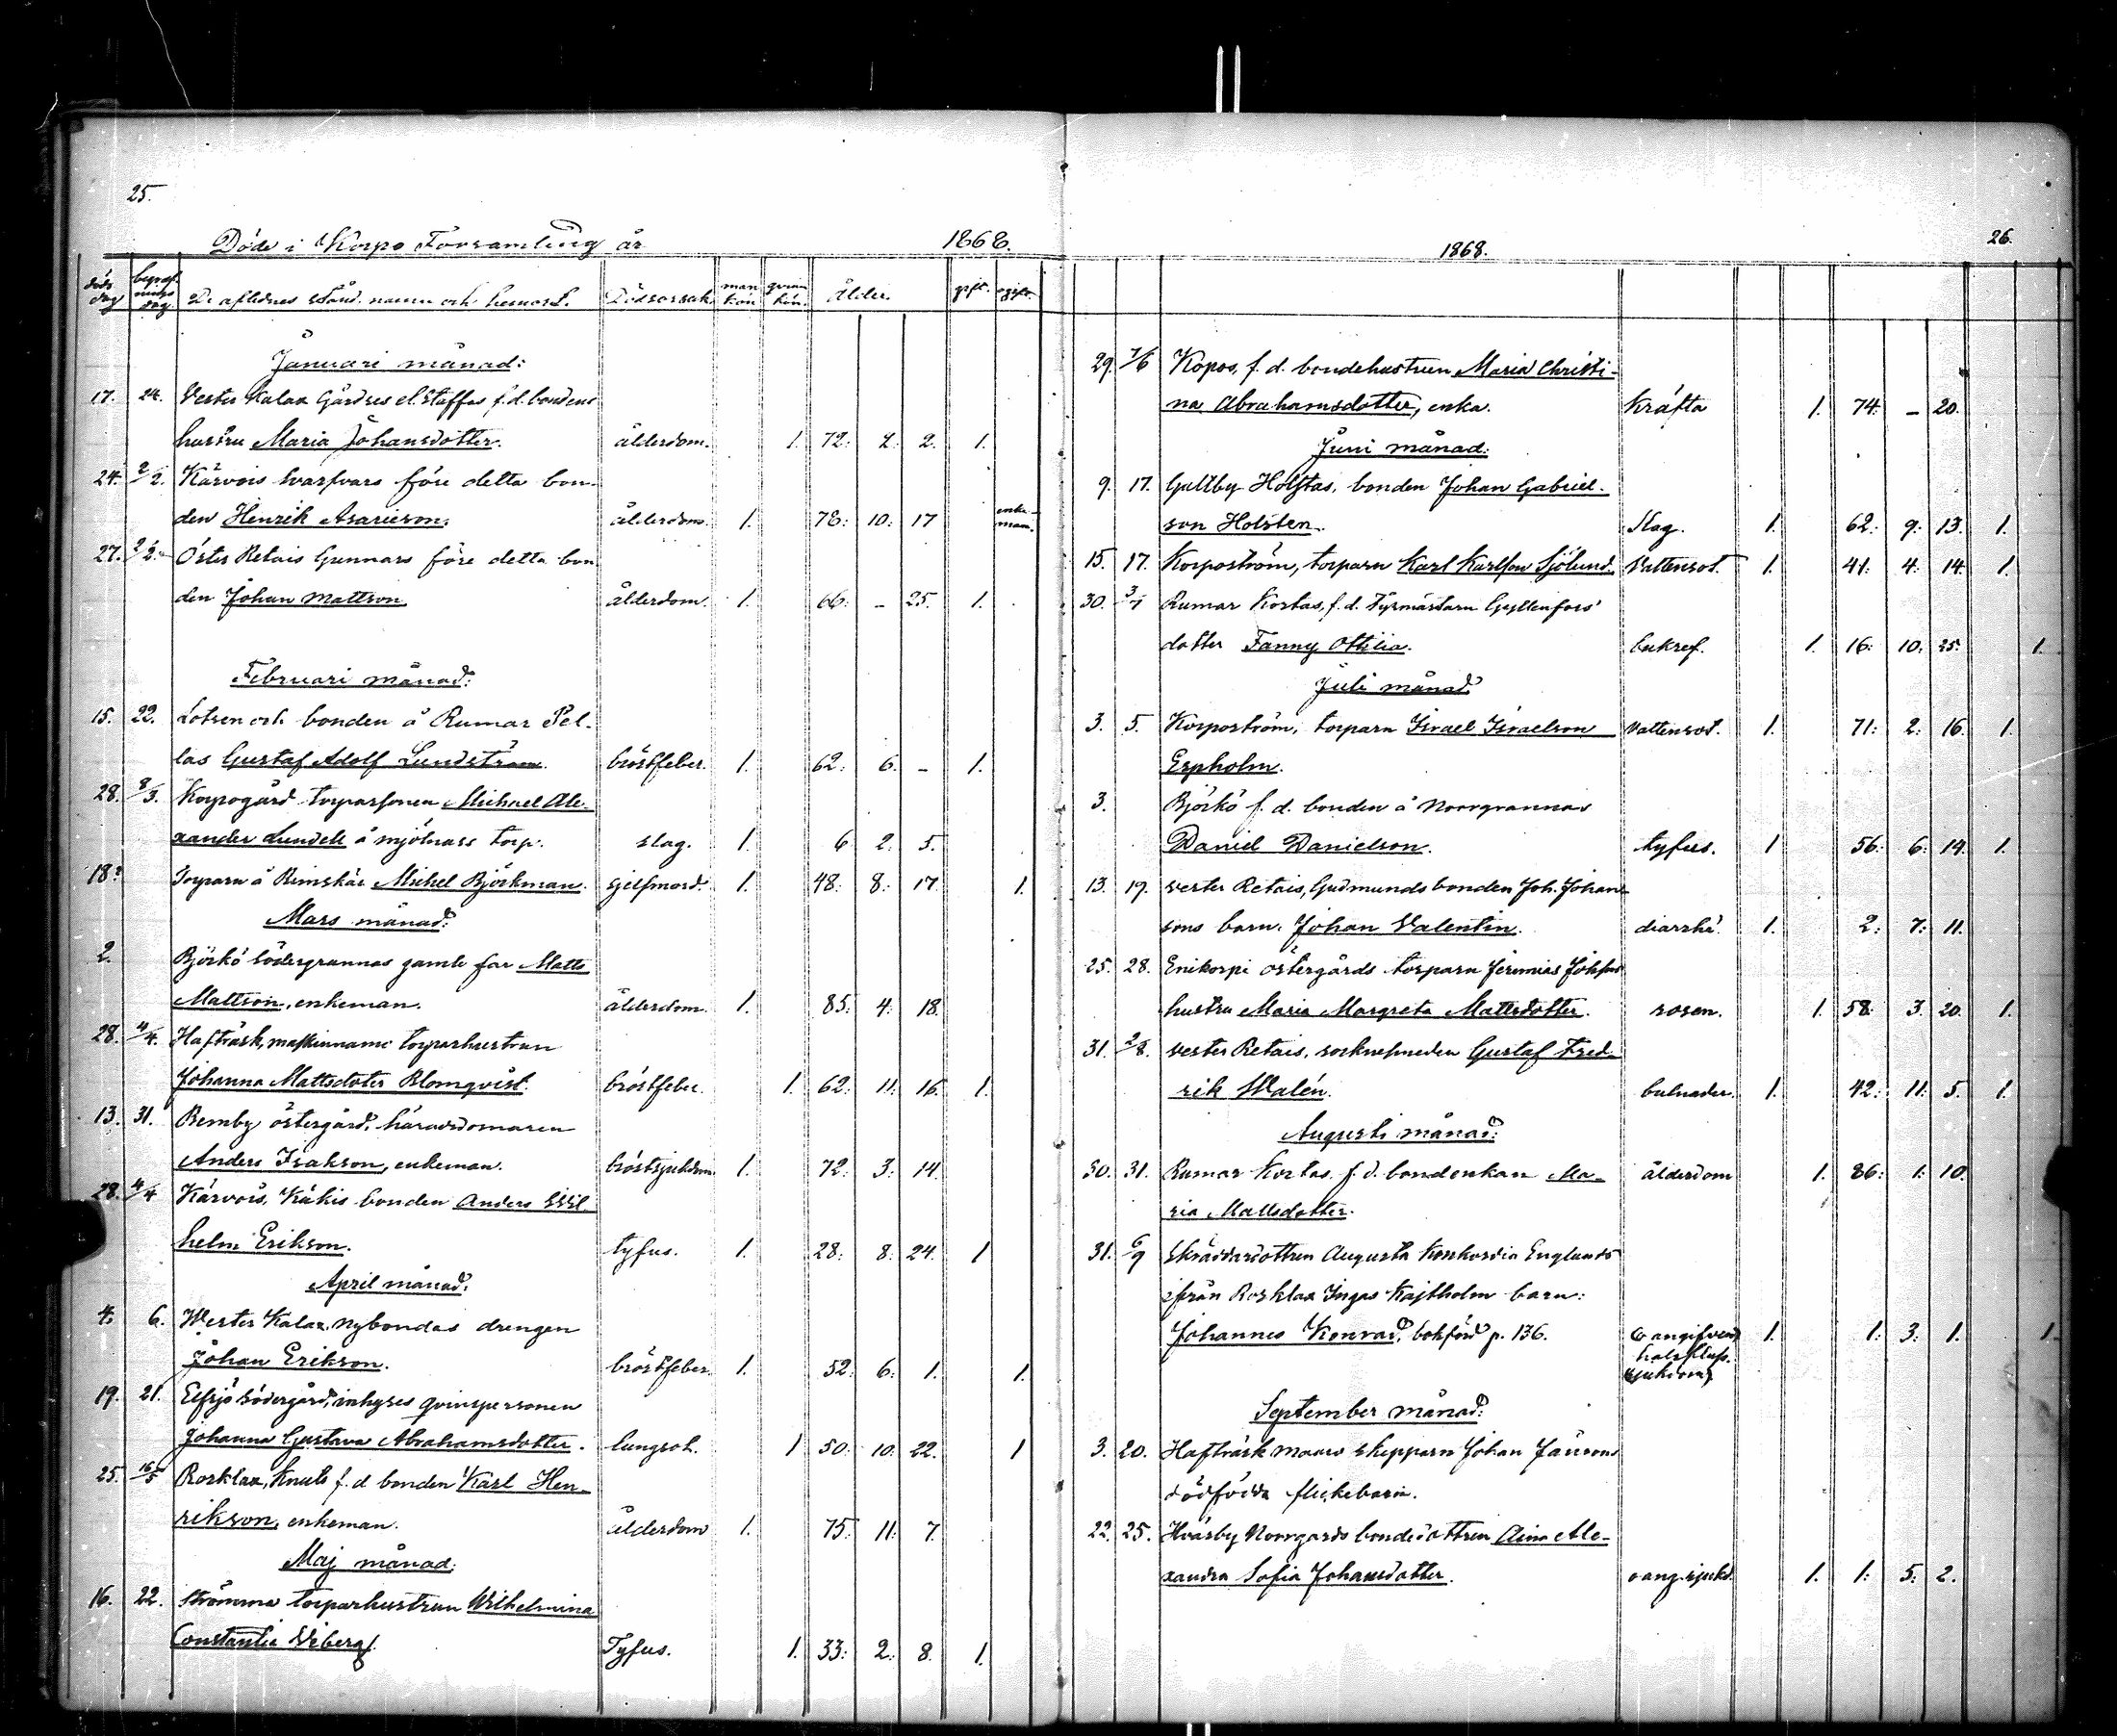 25.
Döde i Korpo Församling år 1868.
döds dag begrafnings dag De aflidnes stånd, namn och hemort. Dödsorsak man kön qvin kön. Ålder. gift. ogift.
Januari månad:
17. 24. Vester Kalax Gårdses el. Staffas f.d. bondens
hustru Maria Johansdotter. ålderdom. 1. 72: 2. 1.
24. 2/2. Kärvois hvarfvars före detta bon-
den Henrik Asarieson. ålderdom. 1. 78: 10: 17 enke-man.
27. 2/2. Öster Retais Gunnars före detta bon
den Johan Mattson. ålderdom. 1. 66: - 25. 1.
Februari månad:
15. 22. Lotsen och bonden å Rumar Pel-
las Gustaf Adolf Lundström. bröstfeber. 1. 62: 6. - 1.
28. 8/3. Korpogård torparsonen Michael Ale-
xander Lundell å mjölnars torp. slag. 1. 6 2: 5.
18? Torparn å Rimskär Michel Björkman. sjelfmord. 1. 48: 8: 17. 1.
Mars månad:
2. Björkö södergrannas gamle far Matts
Mattson, enkeman. ålderdom. 1. 85: 4: 18.
28. 4/4. Hafträsk, torparhustrun
Johanna Mattsdoter Blomqvist. bröstfeber. 1. 62: 11: 16. 1.
13. 31. Remby östergård, häradsdomaren
Anders Isakson, enkeman. bröstsjukdom. 1. 72: 3: 14.
28. 4/4 Kärvois, Käkis bonden Anders Wil-
helm Erikson. tyfus. 1. 28: 8: 24. 1
April månad:
4. 6. Wester Kalax, nybondas drengen
Johan Erikson. bröstfeber. 1. 52: 6: 1. 1.
19. 21. Elfsjö södergård, inhyses qvinspersonen
Johanna Gustava Abrahamsdotter. lungsot. 1 50: 10: 22. 1
25. 16/5 Rosklax, Knuts f.d bonden Karl Hen-
rikson, enkeman. ålderdom 1. 75: 11: 7.
Maj månad:
16. 22. Strömma torparhustrun Wilhelmina
Constantia Viberg. Tyfus. 1. 33: 2: 8. 1.
1868. 26.
29. 7/6 Kopos, f.d. bondehustrun Maria Christi-
na Abrahamsdotter, enka. Kräfta 1. 74: - 20.
Juni månad:
9. 17. Galtby Holstas, bonden Johan Gabriel-
son Holsten. Slag. 1. 62: 9: 13. 1.
15. 17. Korpoström, torparn Karl Karlson Sjölund. Vattensot. 1. 41: 4: 14. 1.
30. Rumar Kortas, f.d. Fyrmästarn Gyllenfors'
dotter Fanny Ottilia. bukref. 1. 16: 10: 25: 1.
Juli månad:
3. 5. Korpoström, torparn Israel Israelson Vattensot. 1. 71: 2: 16. 1.
Erpholm.
3. Björkö f.d. bonden å Norrgrannas
Daniel Danielson. tyfus. 1 56: 6: 14. 1.
13. 19. vester Retais, Gudmunds bonden Joh. Johan-
sons barn. Johan Valentin. diarrhé. 1. 2: 7: 11.
25. 28. Enikorpi östergårds torparn Jeremias
hustru Maria Margreta Mattsdotter. rosen. 1. 58: 3. 20. 1.
31. 2/8. vester Retais, socknesmeden Gustaf Fred-
rik Walén. bulnader. 1. 42: 11: 5. 1.
Augusti månad:
30. 31. Rumar Kortas. f.d. bondenkan Ma- ålderdom 1. 86: 1: 10.
ria Mattsdotter.
31. 6/9 Skräddardottren Augusta Konkordia Englunds
ifrån Rosklax Ingas Kajtholm barn:
Johannes Konrad, bokförd p. 136. oangifven 1. 1: 3: 1. 1.
sjukdom)
September månad:
3. 20. Hafträsk skepparn Johan Jansons
dödfödda flickebarn.
22. 25. Hväsby Norrgårds bondedottren Aina Ale-
xandra Sofia Johansdotter. oang. sjukd. 1. 1: 5: 2.